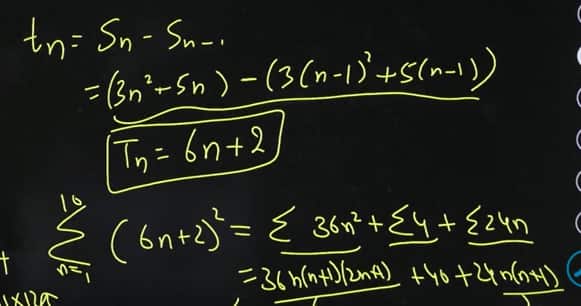 tn = Sn - Sn-1
= (3n²+5n) - (3(n-1)²+5(n-1))
Tn = 6n+2
10
∑ (6n+2)² = ∑ 36n² + ∑4 + ∑24n
n=1
= 36 n(n+1)(2n+1) + 40 + 24 n(n+1)